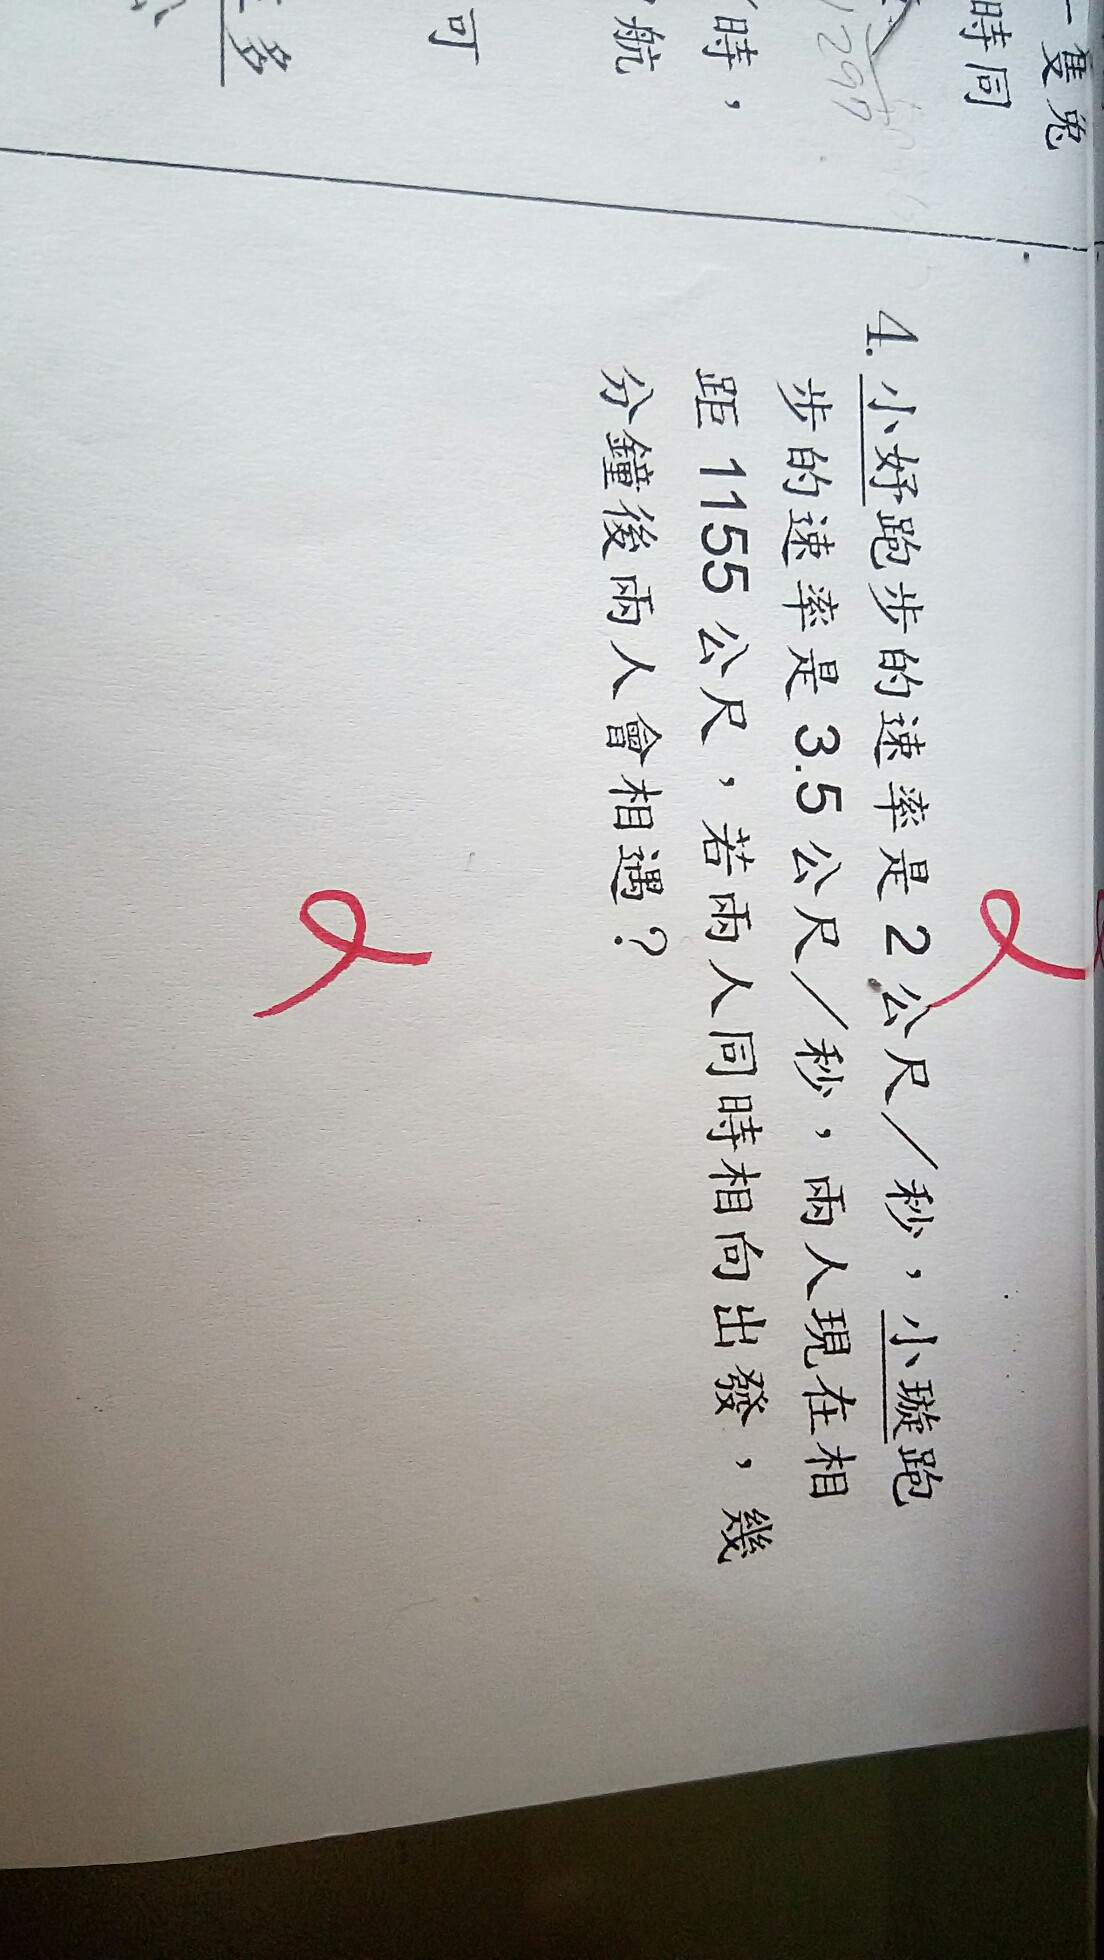 一隻兔
時同
297
時，
航
可
多
4. 小妤跑步的速率是 2 公尺／秒，小璇跑
步的速率是 3.5 公尺／秒，兩人現在相
距 1155 公尺，若兩人同時相向出發，幾
分鐘後兩人會相遇？